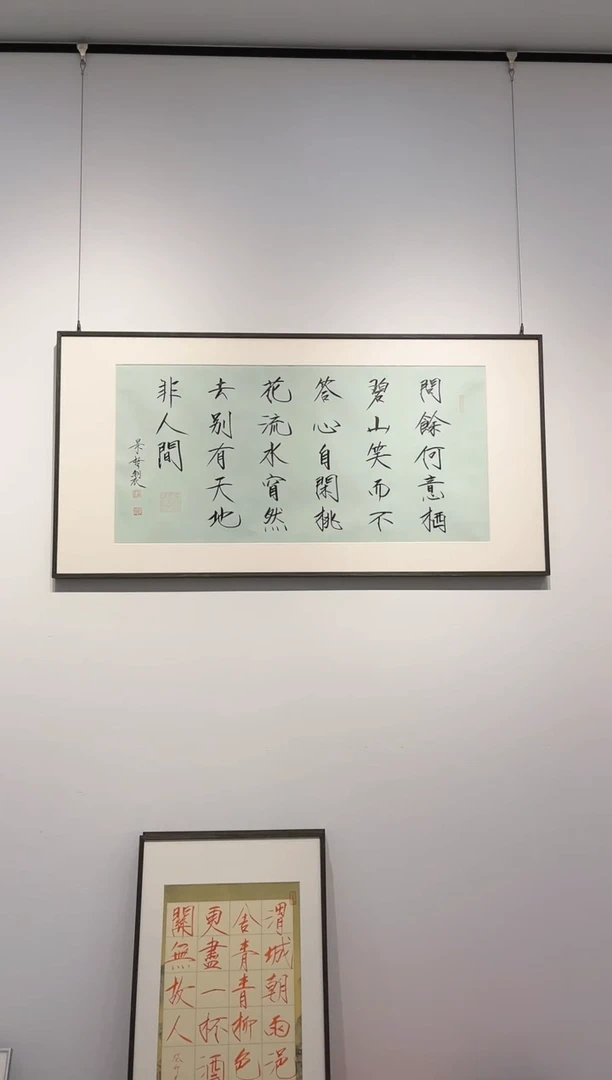 問餘何意栖
碧山笑而不
答心自閑桃
花流水窅然
去别有天地
非人間
渭城朝雨浥
舍青青柳色
更盡一杯酒
關無故人